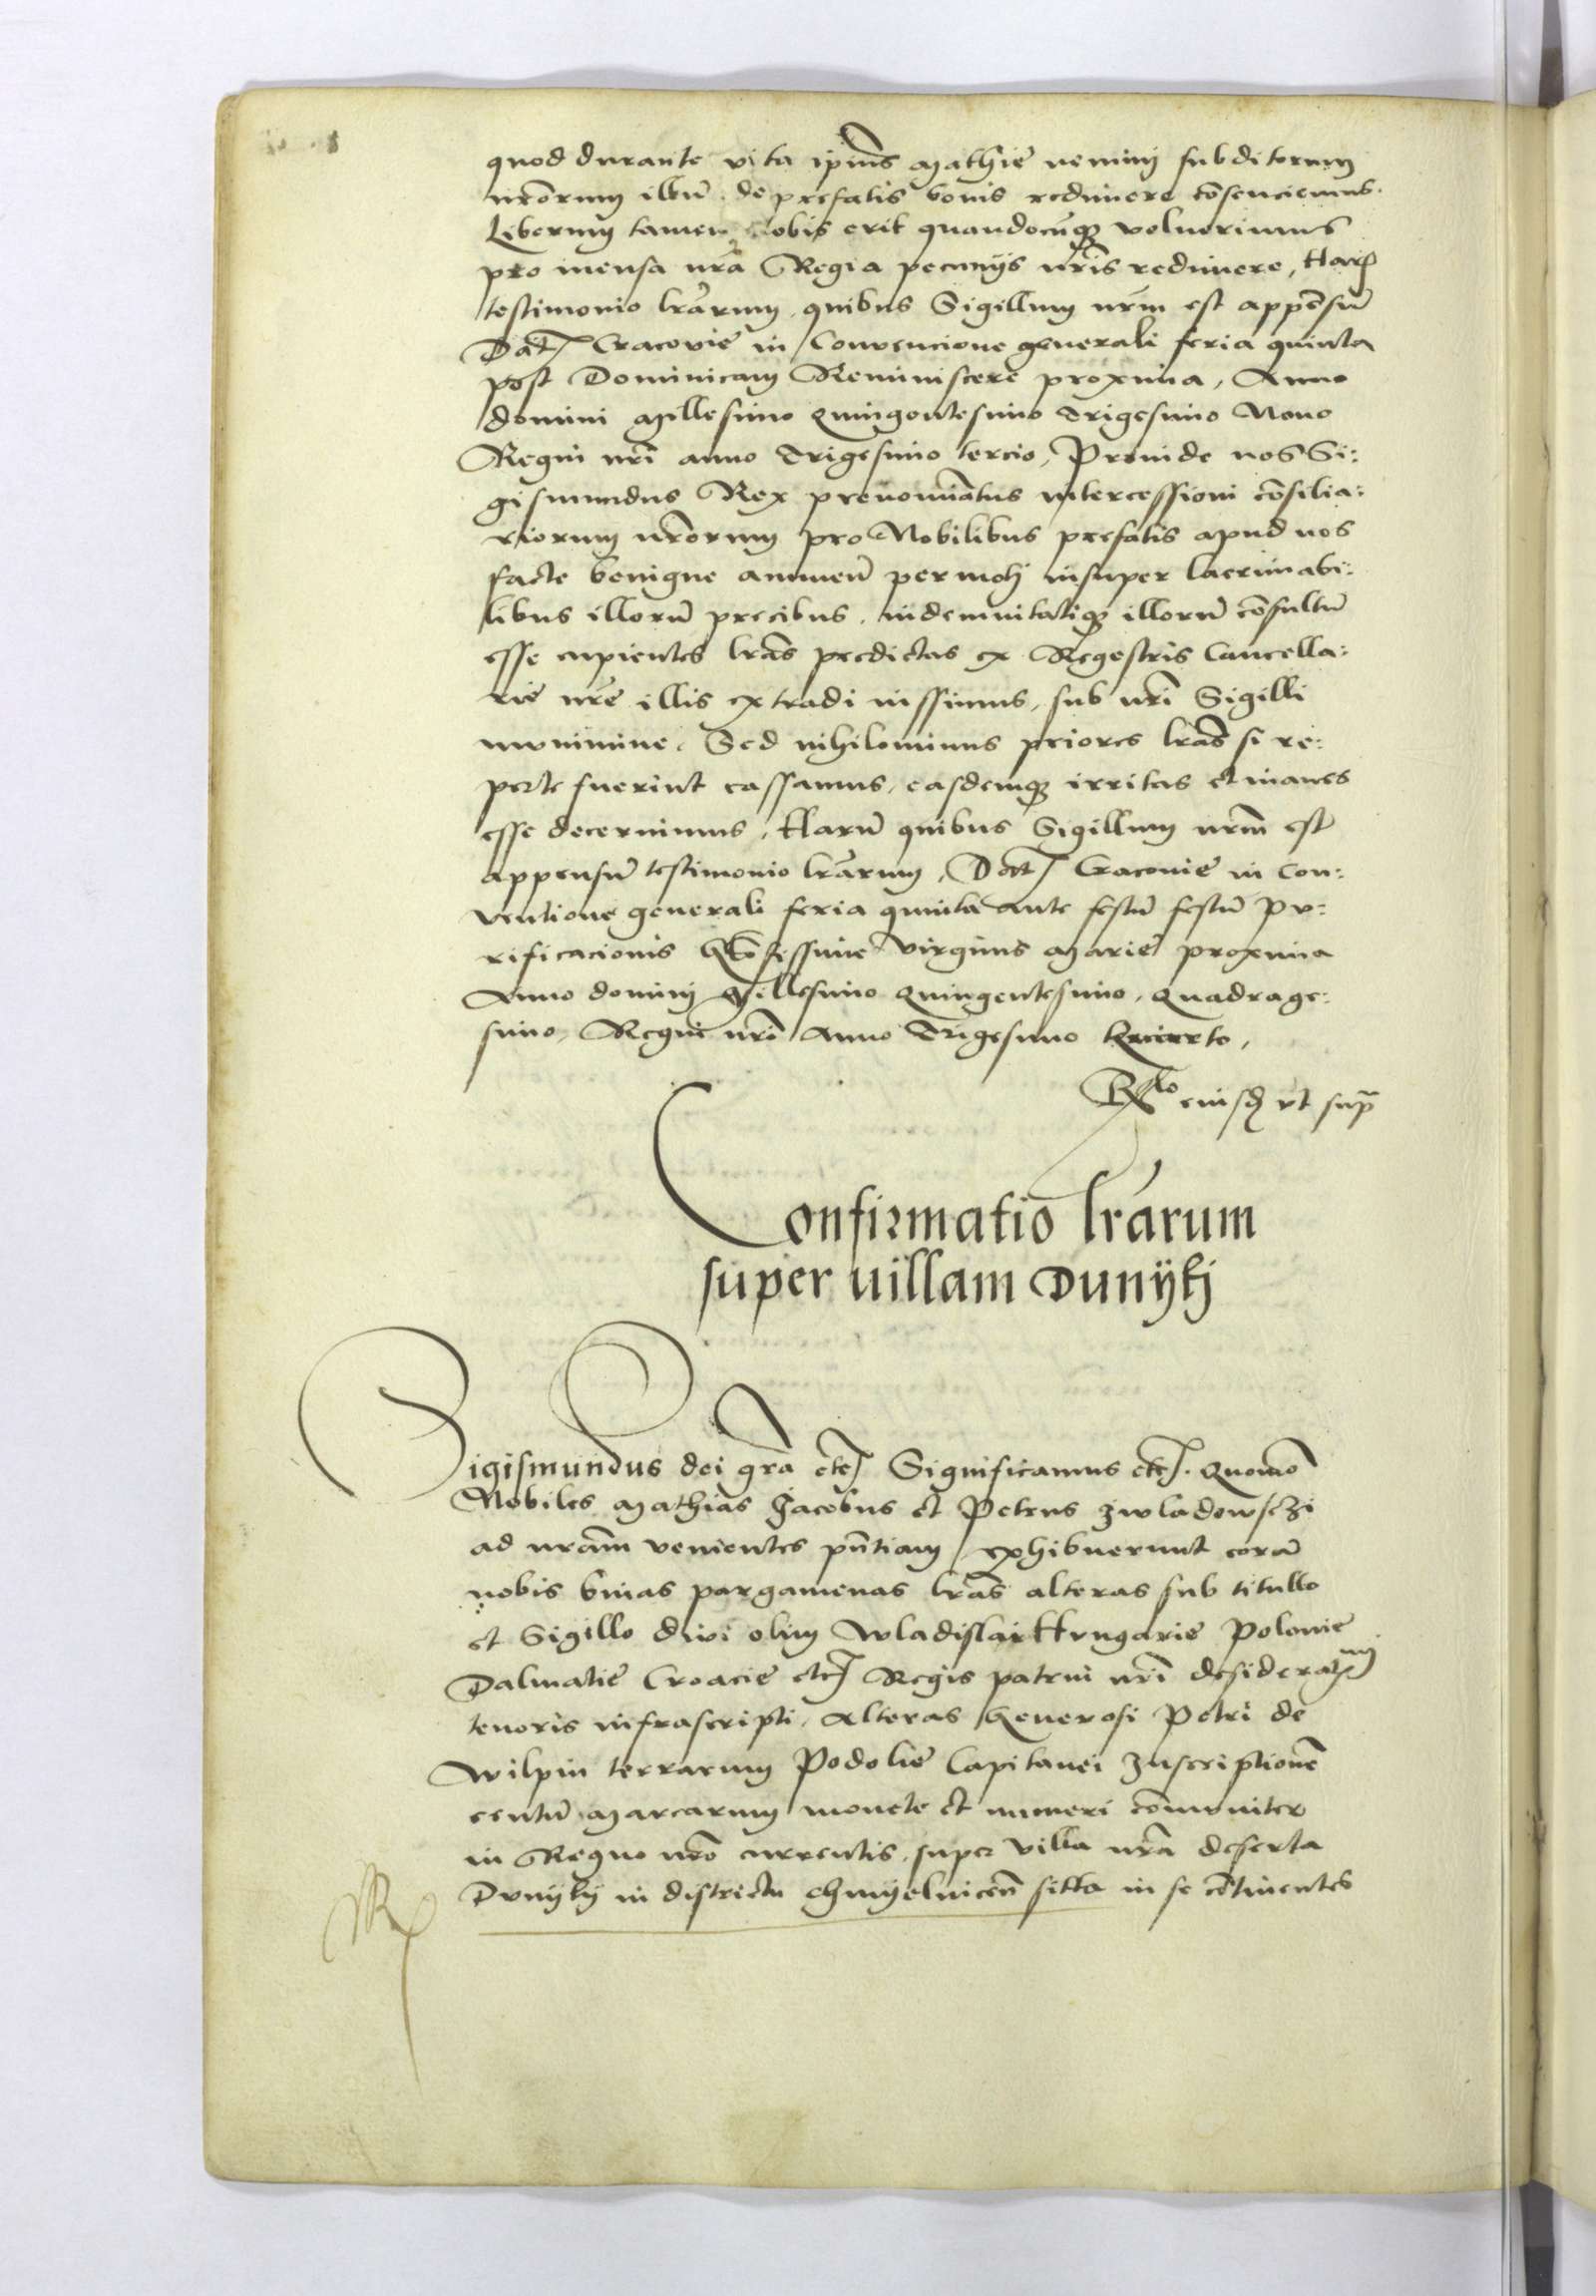 quod durante vita ip̃ius Mathie nemini subditorum
nr̃orum illũ de prefatis bonis redimere cõsenciemus.
Liberum tamen nobis erit quandocũq voluerimus
pro mensa nr̃a Regia pecunijs nr̃is redimere, Har
testimonio lr̃arum quibus Sigillum nr̃m est appẽsũ
Dat Cracovie in Convencione generali feria quinta
post Dominicam Reminiscere proxima, Anno
domini Millesimo Quingentesimo Trigesimo Nono
Regni nr̃i anno Trigesimo tercio, Proinde nos Si:
gismundus Rex prenomiãtus intercessioni cõsilia:
riorum nr̃orum pro Nobilibus prefatis apud nos
facte benigne annuen̄ permoti insuper lacrimabi:
libus illorũ precibus, indemnitatiq illorũ cõsultũ
esse cupientes lr̃as predictas ex Regestris Cancella:
rie nr̃e illis extradi iussimus, sub nr̃i Sigilli
munimine. Sed nihilominus priores lr̃as si re:
perte fuerint cassamus, easdemq irritas et inanes
esse decernimus, Harũ quibus Sigillum nr̃m est
appensũ testimonio lr̃arum, Dat Cracovie in Con:
ventione generali feria quinta ante festũ festũ Pu:
rificacionis Glõsissime virginis Marie proxima
Anno domini Millesimo Quingentesimo, Quadrage:
simo, Regni nr̃i Anno Trigesimo
Rlo eiusd vt sup
Confirmatio lr̃arum
super villam Dunÿki
Sigismundus dei gr̃a etc Significamus etc. Quomõ
Nobiles Mathias Jacobus et Petrus Zwladowsczi
ad nr̃am venientes pñtiam exhibuerunt corã
nobis binas pargamenas lr̃as alteras sub titullo
et Sigillo divi olim Wladislai Hungarie Polonie
Dalmatie Croacie etc Regis patrui nr̃i desideratmi
tenoris infrascripti, Alteras Generosi Petri de
Wilpin terrarum Podolie Capitanei Inscriptionẽ
centũ Marcarum monete et numeri cõmuniter
in Regno nr̃o currentis, super villa nr̃a deserta
Dunÿky in districtu Chmyelnicen̄ sitta in se cõtinentes